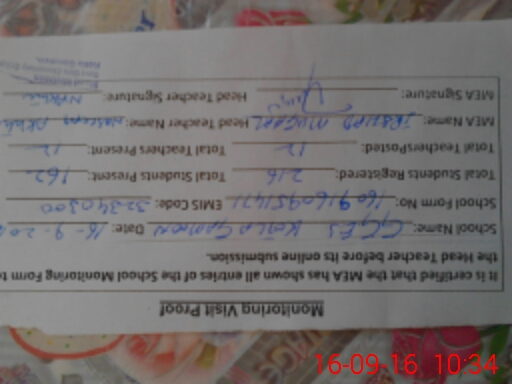 Monitoring Visit Proof
It is certified that the MEA has shown all entries of the School Monitoring Form t
the Head Teacher before its online submission.
School Name: GGES KOTLA Date: 16-9-20
School Form No: EMIS Code: 32340300
Total Students Registered: 216 Total Students Present: 162
Total TeachersPosted: 12 Total Teachers Present: 12
MEA Name: IRSHAD MUGHAL Head Teacher Name:
MEA Signature: Head Teacher Signature:
16-09-16 10:34